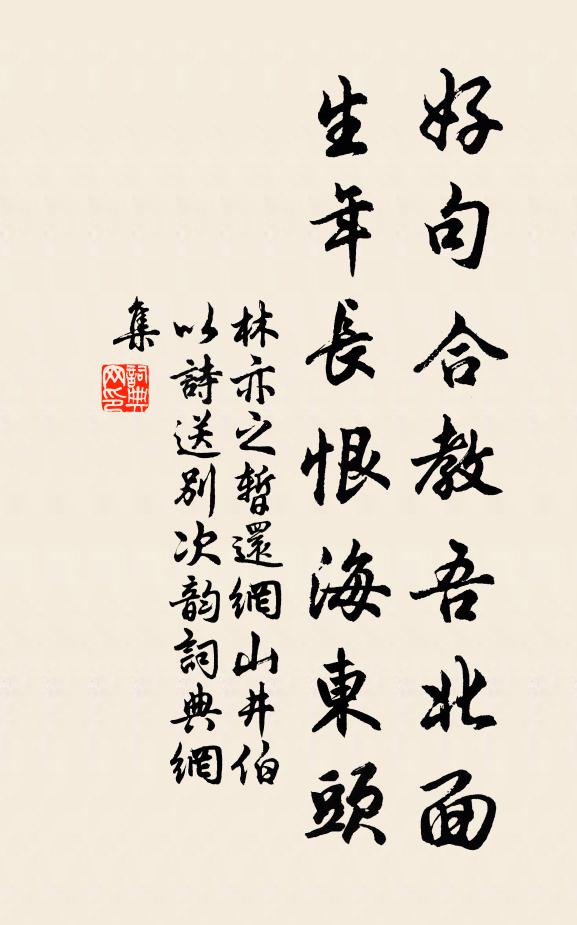 好句合教吾北面
生年長恨海東頭
林亦之暫還網山井伯
以詩送别次韵詞典網
集
詞典网印